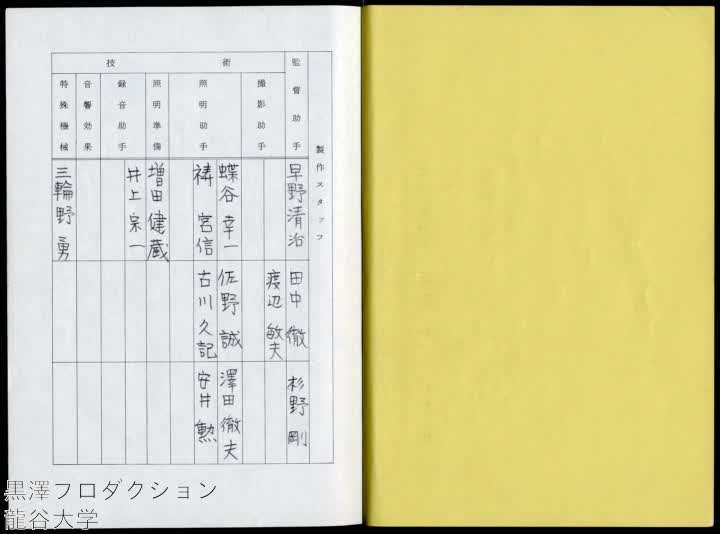 製作スタッフ
監督助手
早野清治
田中徹
杉野剛
技術
撮影助手
渡辺敏夫
照明助手
蝶谷幸一
佐野誠
澤田徹夫
祷宮信
古川久記
安井勲
照明準備
増田健蔵
録音助手
井上宗一
音響効果
特殊機械
三輪野勇
黒澤プロダクション
龍谷大学